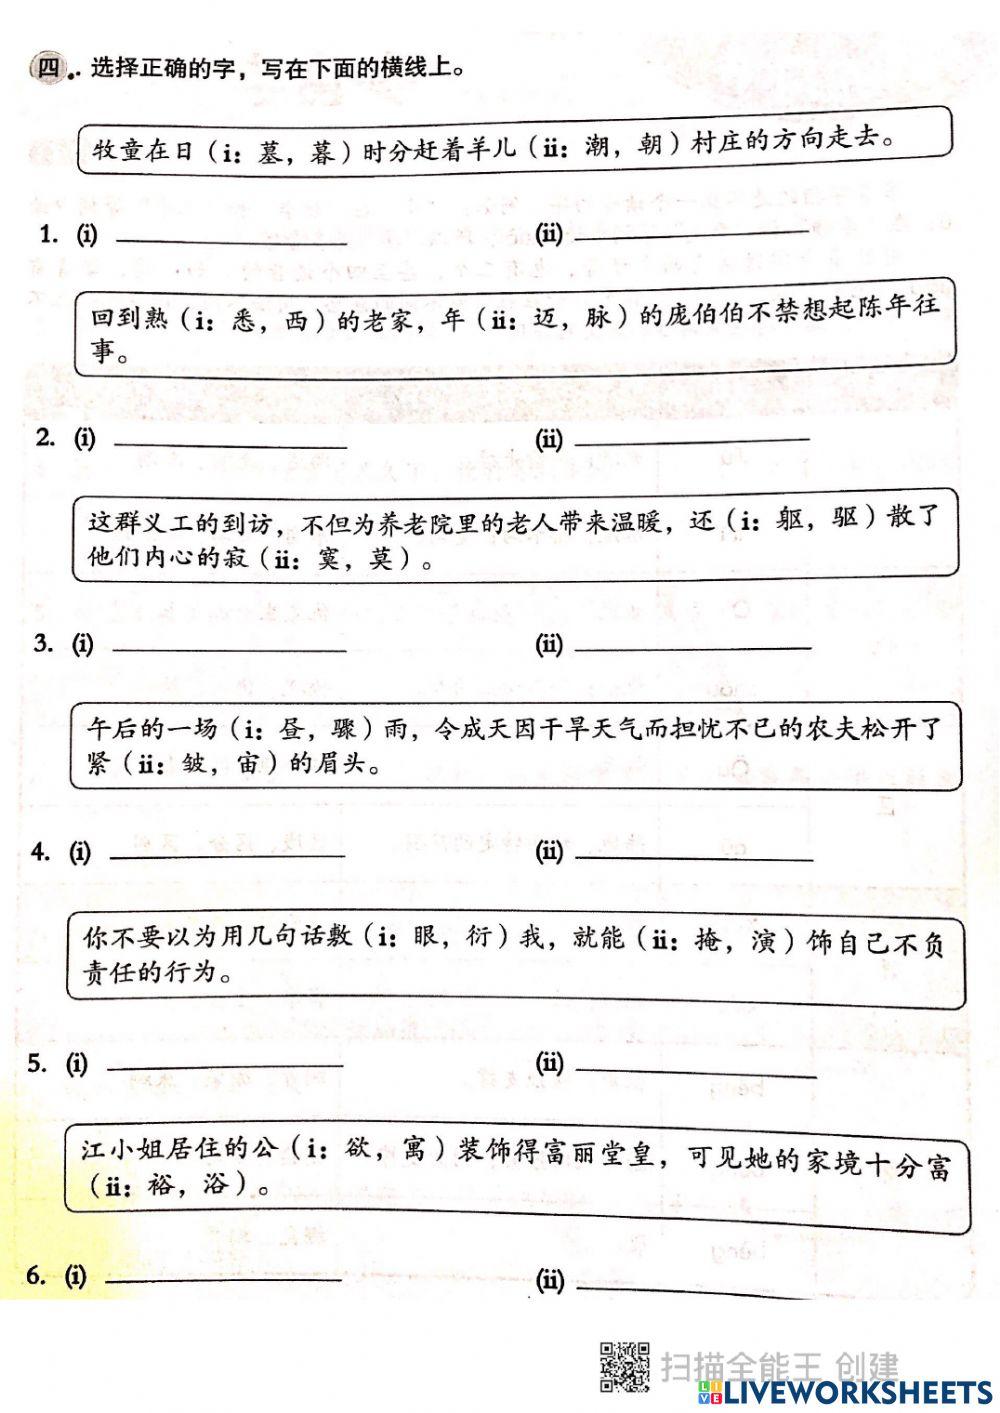 四．选择正确的字，写在下面的横线上。
牧童在日（i：墓，暮）时分赶着羊儿（ii：潮，朝）村庄的方向走去。
1. (i) (ii)
回到熟（i：悉，西）的老家，年（ii：迈，脉）的庞伯伯不禁想起陈年往
事。
2. (i) (ii)
这群义工的到访，不但为养老院里的老人带来温暖，还（i：躯，驱）散了
他们内心的寂（ii：寞，莫）。
3. (i) (ii)
午后的一场（i：昼，骤）雨，令成天因干旱天气而担忧不已的农夫松开了
紧（ii：皱，宙）的眉头。
4. (i) (ii)
你不要以为用几句话敷（i：眼，衍）我，就能（ii：掩，演）饰自己不负
责任的行为。
5. (i) (ii)
江小姐居住的公（i：欲，寓）装饰得富丽堂皇，可见她的家境十分富
（ii：裕，浴）。
6. (i) (ii)
扫描全能王 创建
LIVE LIVEWORKSHEETS